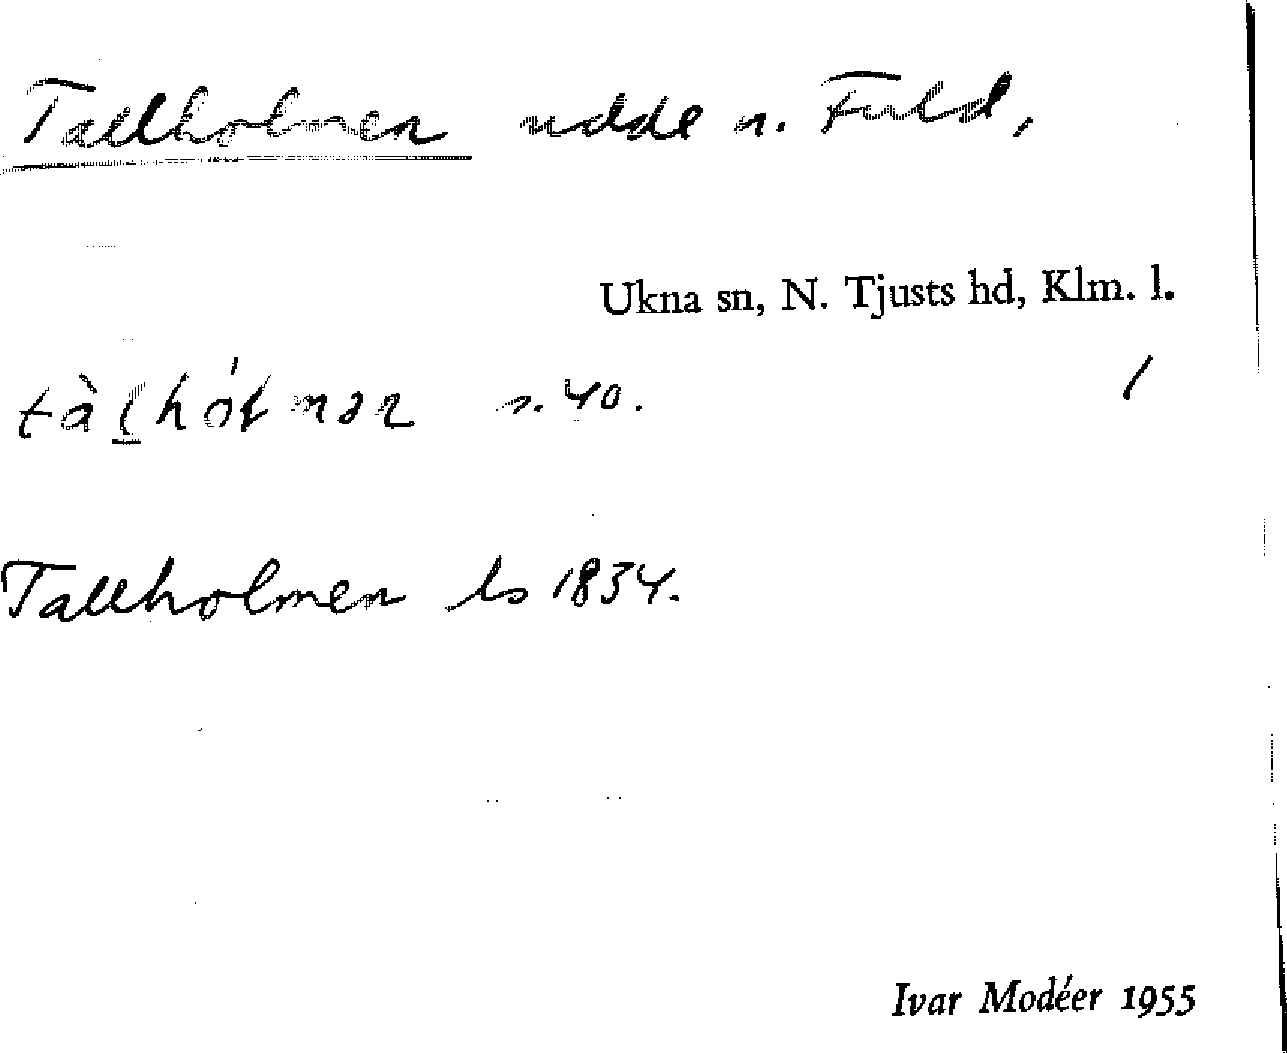 Tallholmen udde n. Fuld,
Ukna sn, N. Tjusts hd, Klm. l.
s. 40. /
Tallholmen ls 1834.
Ivar Modéer 1955